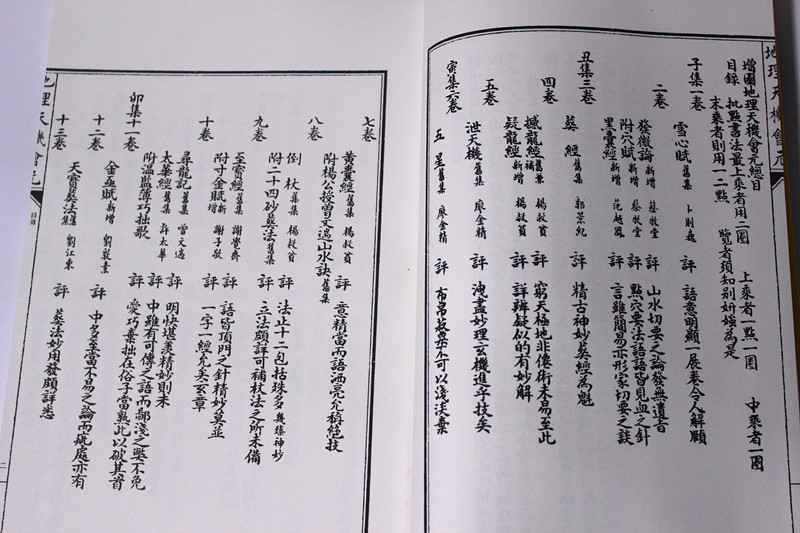 地理天機會元
增圖地理天機會元總目
目錄 批點書法最上乘者用二圈 上乘者一點一圈 中乘者一圈
末乘者則用一二點 覽者須知別妍媸為是
子集一卷
雪心賦 舊集 卜則巍 評 語意明顯一展卷令人解頤
二卷
發微論 新增 蔡牧堂 評 山水切要之論發無遺旨
附穴賦 新增 蔡牧堂 評 點穴要法語語皆見血之針
黑囊經 新增 范越鳳 評 言雖簡易亦形家切要之談
丑集三卷
葬經 舊集 郭景純 評 精古神妙葬經為魁
四卷
撼龍經 舊集 楊救貧 評 窮天極地非僊術未易至此
疑龍經 新增 楊救貧 評 詳辨疑似的有妙解
五卷
泄天機 舊集 廖金精 評 洩盡妙理玄機進乎技矣
寅集六卷
五星 舊集 廖金精 評 布帛菽粟不可以淺淡棄
七卷
黃囊經 舊集 楊救貧 評 意精當而語洒亮允稱絕技
附楊公授曾文遄山水訣 舊集
八卷
倒杖 舊集 楊救貧 評 法止十二包括殊多幾臻神妙
附二十四砂葬法 舊集 評 立法頗詳可補杖法之所未備
九卷
至寶經 舊集 謝覺齋 評 語皆頂門之針精妙莫並
附寸金賦 新增 謝子敬 評 一字一經允矣至章
十卷
尋龍記 舊集 曾文遄 評 明快堪羨精妙則未
太華經 舊集 許太華 評 中雖有可傳之語而鄙淺之弊不免
附溫監簿巧拙歌 評 愛巧棄拙在俗子當熟此以破其盲
卯集十一卷
金函賦 新增 劉敦素 評 中多至當不易之論而疵處亦有
十二卷
天寶葬法 舊集 劉江東 評 葬法妙用發頗詳悉
十三卷
地理天機會元
目錄
二